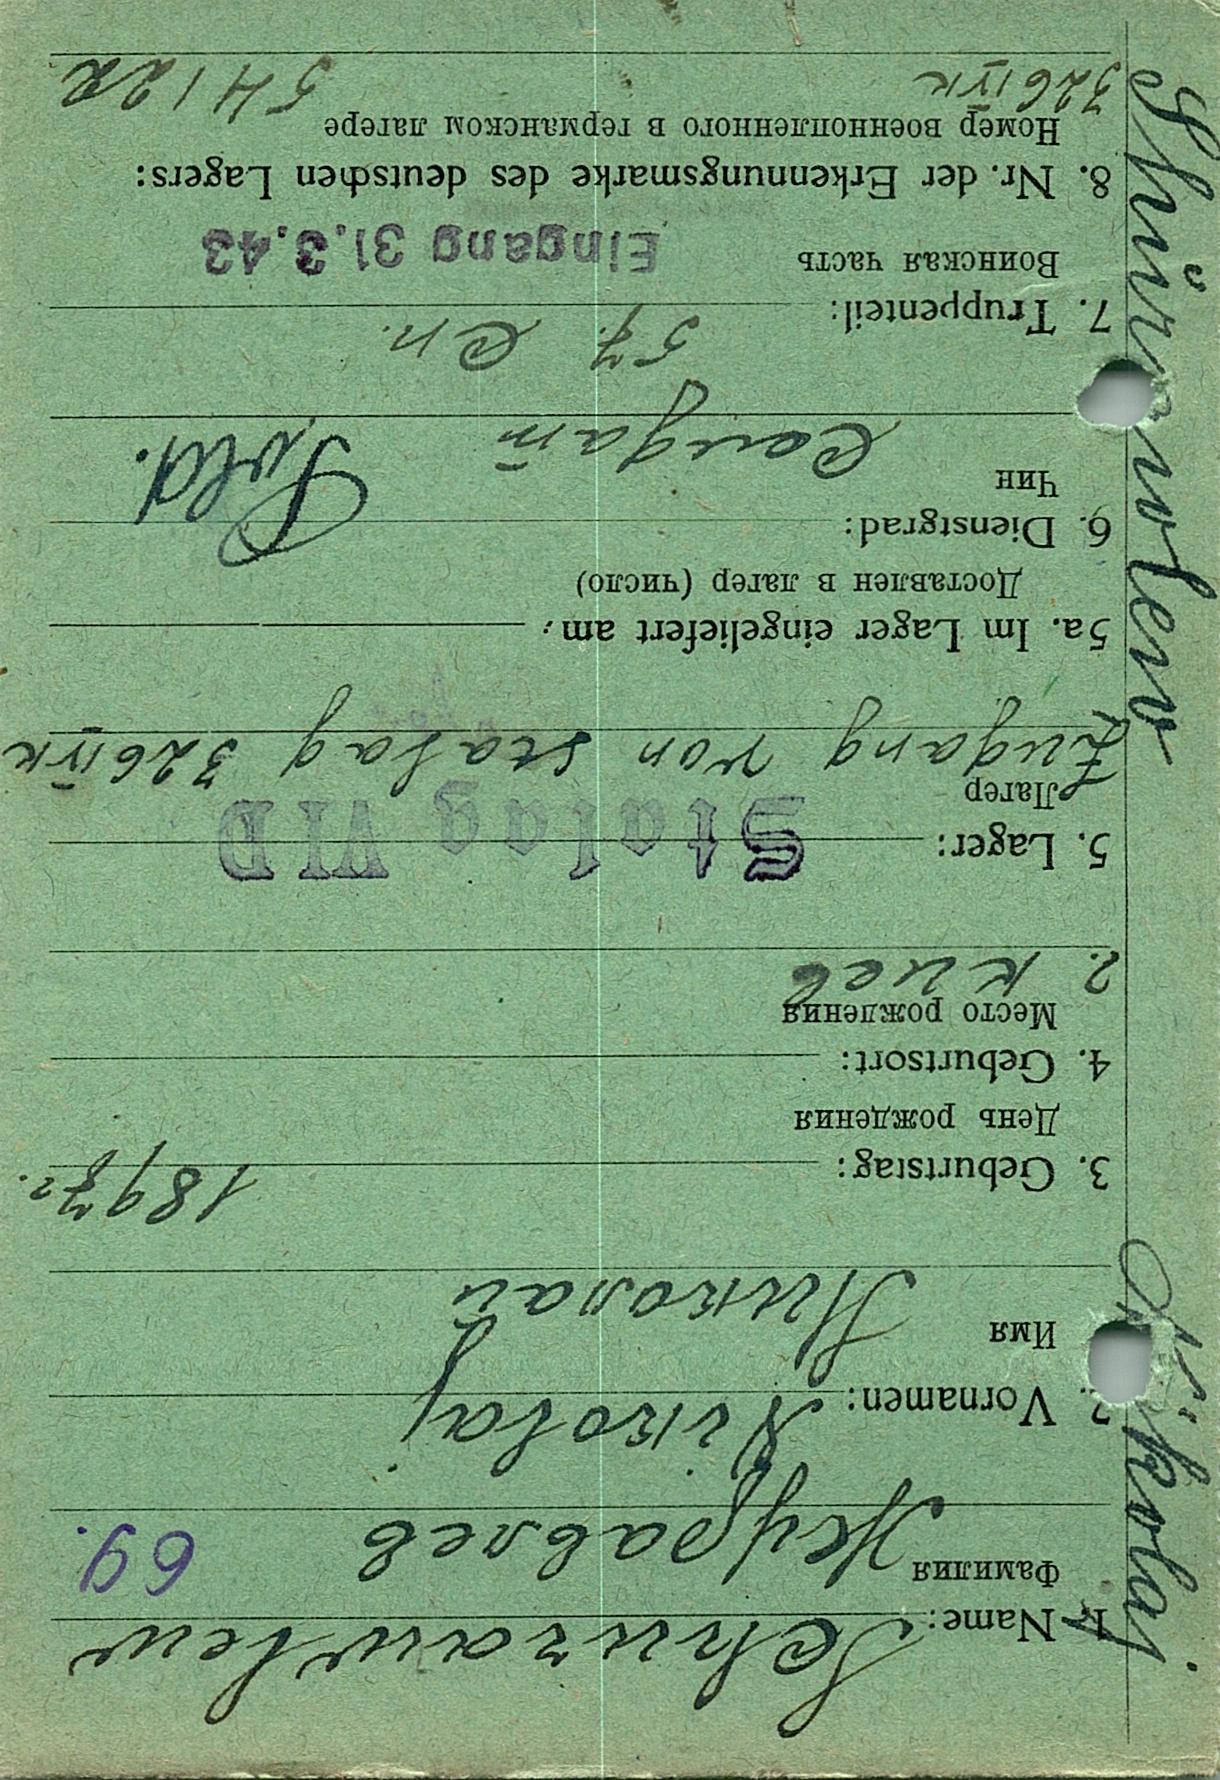 1. Name: Schurawlew
Фамилия Журавлев 69.
2. Vornamen: Nikolaj
Имя Николай
3. Geburtstag: 1897 г.
День рождения
4. Geburtsort:
Место рождения
г. Киев
5. Lager: Stalag VI D
Лагер
Zugang von Stalag 326 VI K
5a. Im Lager eingeliefert am:
Доставлен в лагер (число)
6. Dienstgrad: Sold.
Чин солдат
7. Truppenteil: 57. сп.
Воинская часть Eingang 31.3.43
8. Nr. der Erkennungsmarke des deutschen Lagers:
Номер военнопленного в германском лагере
326 VI K 54122
Nikolaj